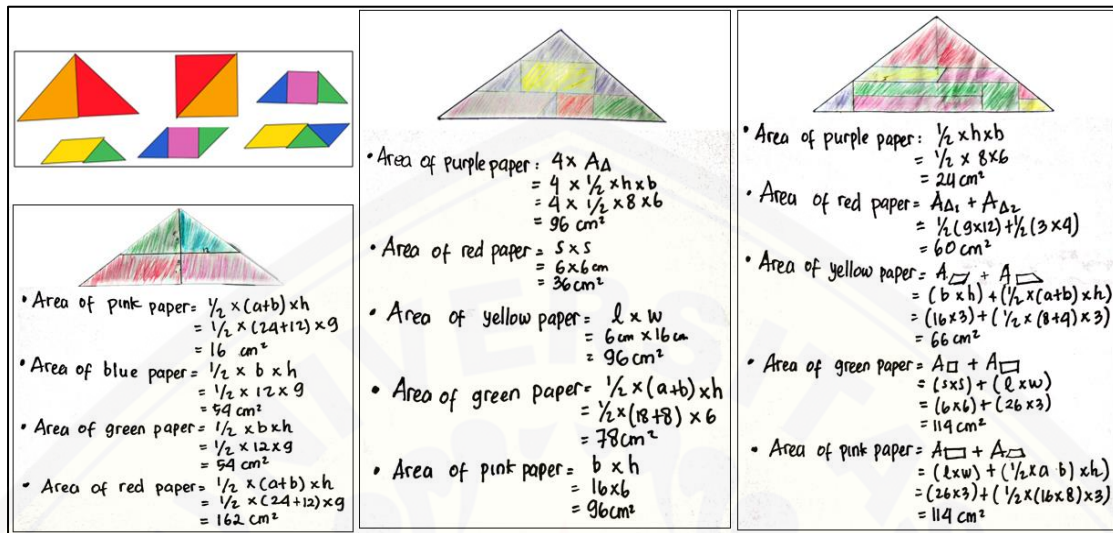 • Area of pink paper = 1/2 × (a+b) × h
= 1/2 × (24+12) × 9
= 16 cm²
• Area of blue paper = 1/2 × b × h
= 1/2 × 12 × 9
= 54 cm²
• Area of green paper = 1/2 × b × h
= 1/2 × 12 × 9
= 54 cm²
• Area of red paper = 1/2 × (a+b) × h
= 1/2 × (24+12) × 9
= 162 cm²
• Area of purple paper = 4 × A△
= 4 × 1/2 × h × b
= 4 × 1/2 × 8 × 6
= 96 cm²
• Area of red paper = s × s
= 6 × 6 cm
= 36 cm²
• Area of yellow paper = l × w
= 6 cm × 16 cm
= 96 cm²
• Area of green paper = 1/2 × (a+b) × h
= 1/2 × (18+8) × 6
= 78 cm²
• Area of pink paper = b × h
= 16 × 6
= 96 cm²
• Area of purple paper = 1/2 × h × b
= 1/2 × 8 × 6
= 24 cm²
• Area of red paper = A△1 + A△2
= 1/2 (9×12) + 1/2 (3×4)
= 60 cm²
• Area of yellow paper = A▱ + A⏢
= (b × h) + (1/2 × (a+b) × h)
= (16×3) + (1/2 × (8+4) × 3)
= 66 cm²
• Area of green paper = A□ + A▭
= (s×s) + (l×w)
= (6×6) + (26×3)
= 114 cm²
• Area of pink paper = A▭ + A⏢
= (l×w) + (1/2 × a b) × h)
= (26×3) + (1/2 × (16×8) × 3)
= 114 cm²
UNIVERSITA